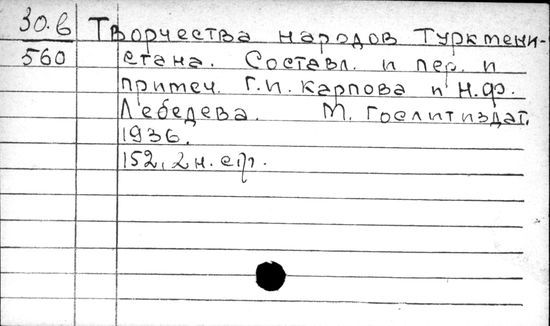 30.6 Творчества народов Туркмени-
560 стана. Составл. и пер. и
примеч. Г.И. Карпова и Н.Ф.
Лебедева. М. Гослитиздат.
1936.
152, 2 н. стр.